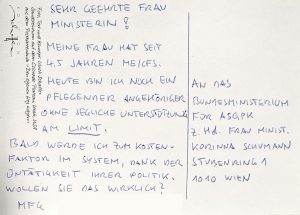 SEHR GEEHRTE FRAU
MINISTERIN!
MEINE FRAU HAT SEIT
4,5 JAHREN ME/CFS.
HEUTE BIN ICH NOCH EIN
PFLEGENDER ANGEHÖRIGER
OHNE JEGLICHE UNTERSTÜTZUNG
AM LIMIT.
BALD WERDE ICH ZUM KOSTEN-
FAKTOR IM SYSTEM, DANK DER
UNTÄTIGKEIT IHRER POLITIK.
WOLLEN SIE DAS WIRKLICH?
MFG
AN DAS
BUNDESMINISTERIUM
FÜR ASGPK
Z.Hd. FRAU MINIST.
KORINNA SCHUMANN
STUBENRING 1
1010 WIEN